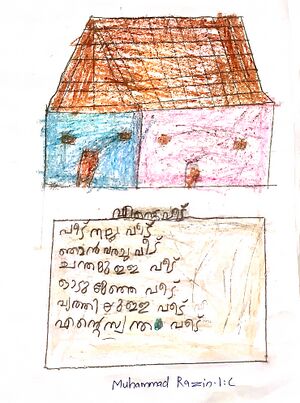 എന്റെ വീട്
വീട് നല്ല വീട്
ഞാൻ വരച്ച വീട്
ചന്തമുള്ള വീട്
ഓടു മേഞ്ഞ വീട്
വൃത്തിയുള്ള വീട്
എന്റെ സ്വന്തം വീട്
Muhammad Razzin. 1. C